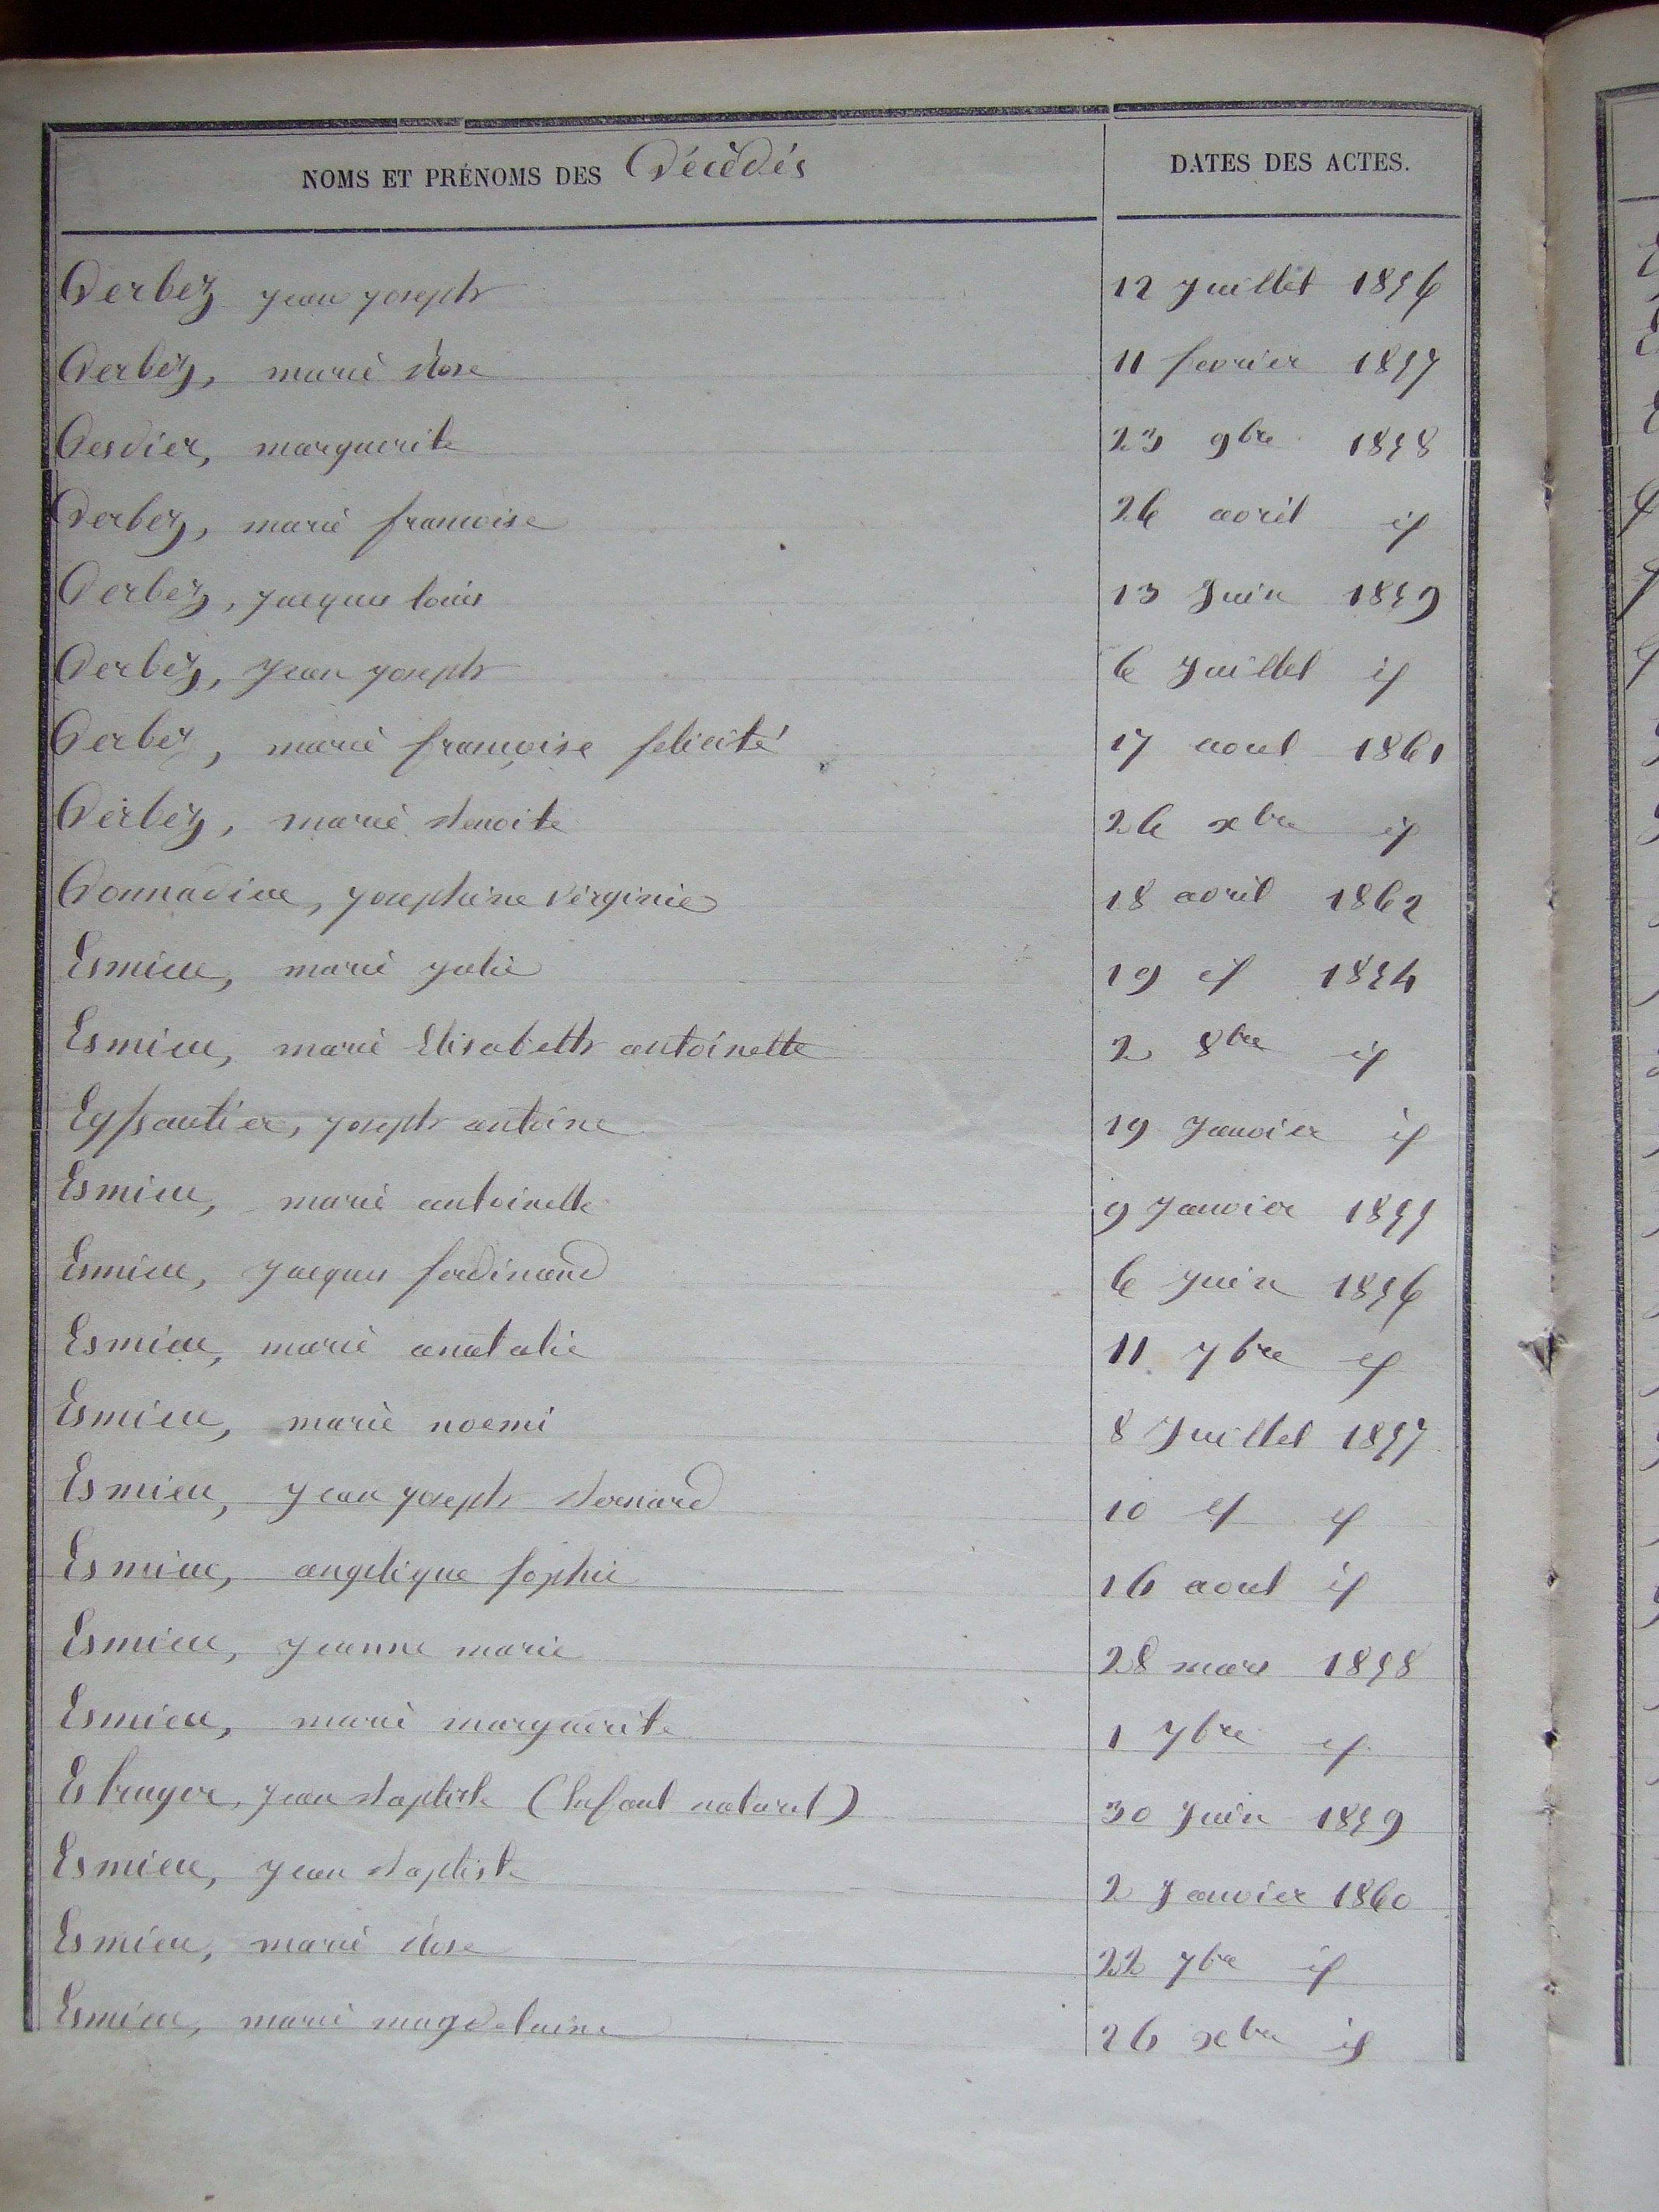 NOMS ET PRÉNOMS DES Décédés DATES DES ACTES.
Derbez jean joseph 12 juillet 1856
Derbez, marie Rose 11 fevrier 1857
Desdier, marguerite 23 9bre 1858
Derbez, marie francoise 26 avril id
Derbez, jacques louis 13 Juin 1859
Derbez, jean joseph 6 Juillet id
Derbez, marie françoise felicité 17 aout 1861
Derbez, marie Benoite 26 xbre id
Donnadieu, josephine virginie 18 avril 1862
Esmieu, marie julie 19 id 1854
Esmieu, marie Elisabeth antoinette 2 8bre id
Eyssautier, joseph antoine 19 Janvier id
Esmieu, marie antoinette 9 Janvier 1855
Esmieu, jacques ferdinand 6 Juin 1856
Esmieu, marie anatalie 11 7bre id
Esmieu, marie noemi 8 Juillet 1857
Esmieu, jean joseph Bernard 10 id id
Esmieu, angelique sophie 16 aout id
Esmieu, jeanne marie 28 mars 1858
Esmieu, marie marguerite 1 7bre id
jean Baptiste (Enfant naturel) 30 Juin 1859
Esmieu, jean Baptiste 2 Janvier 1860
Esmieu, marie Rose 22 7bre id
Esmieu, marie magdelaine 26 xbre id